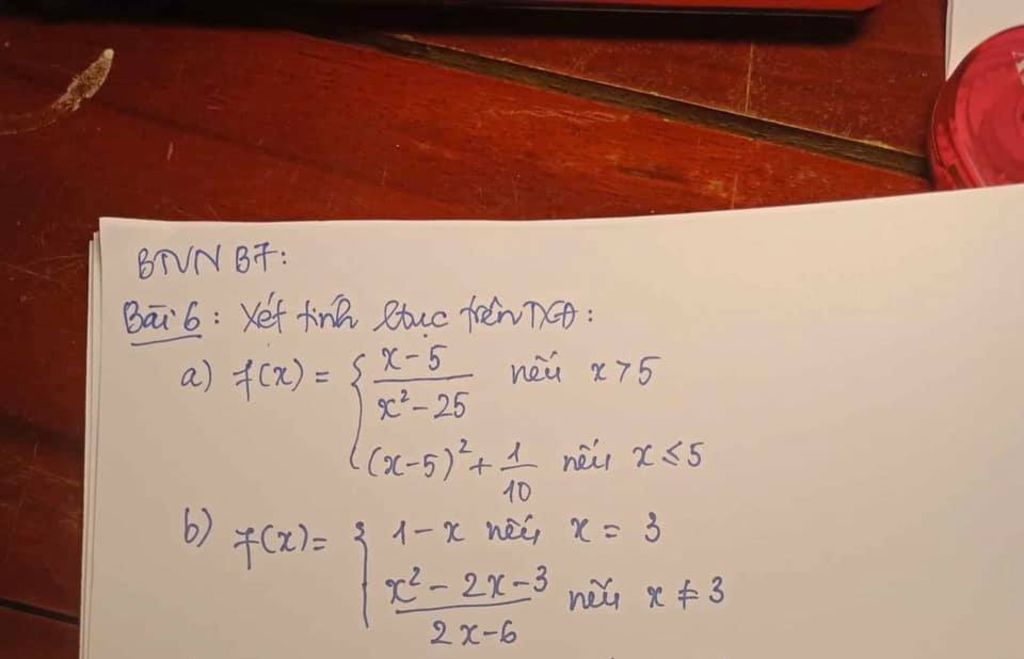 BTVN B7:
Bài 6: Xét tính ltục trên TXĐ:
a) f(x) = { x-5 / x²-25 nếu x > 5
(x-5)² + 1/10 nếu x ≤ 5
b) f(x) = { 1-x nếu x = 3
x² - 2x - 3 / 2x-6 nếu x ≠ 3